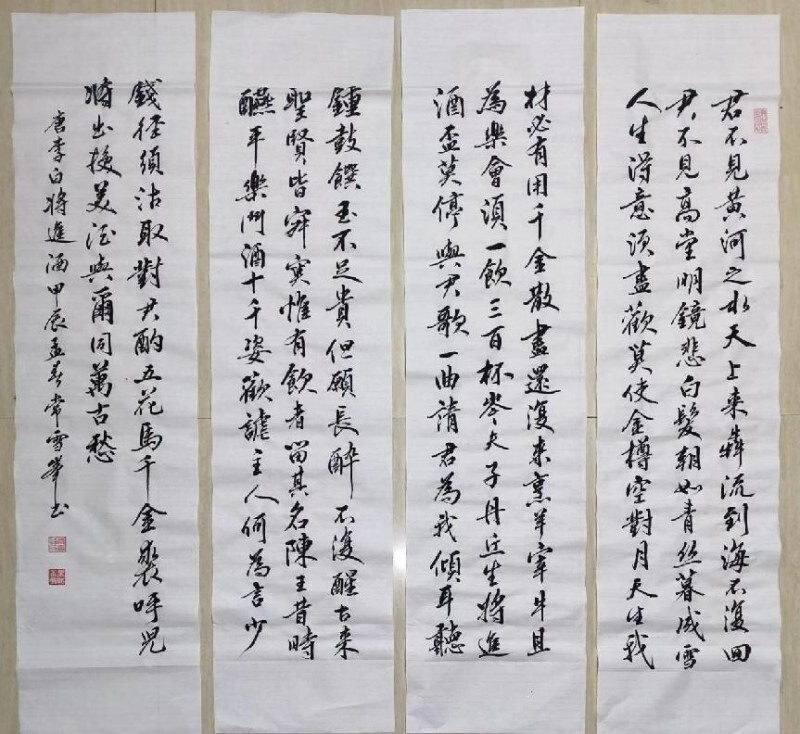 君不見黃河之水天上来奔流到海不復回
君不見高堂明鏡悲白髮朝如青丝暮成雪
人生得意須盡歡莫使金樽空對月天生我
材必有用千金散盡還復来烹羊宰牛且
為樂會須一飲三百杯岑夫子丹丘生將進
酒盃莫停與君歌一曲請君為我傾耳聽
鍾鼓饌玉不足貴但願長醉不復醒古来
聖賢皆寂寞惟有飲者留其名陳王昔時
讌平樂斗酒十千恣歡謔主人何為言少
錢徑須沽取對君酌五花馬千金裘呼兒
將出換美酒與爾同萬古愁
唐李白將進酒甲辰孟春常雪華书